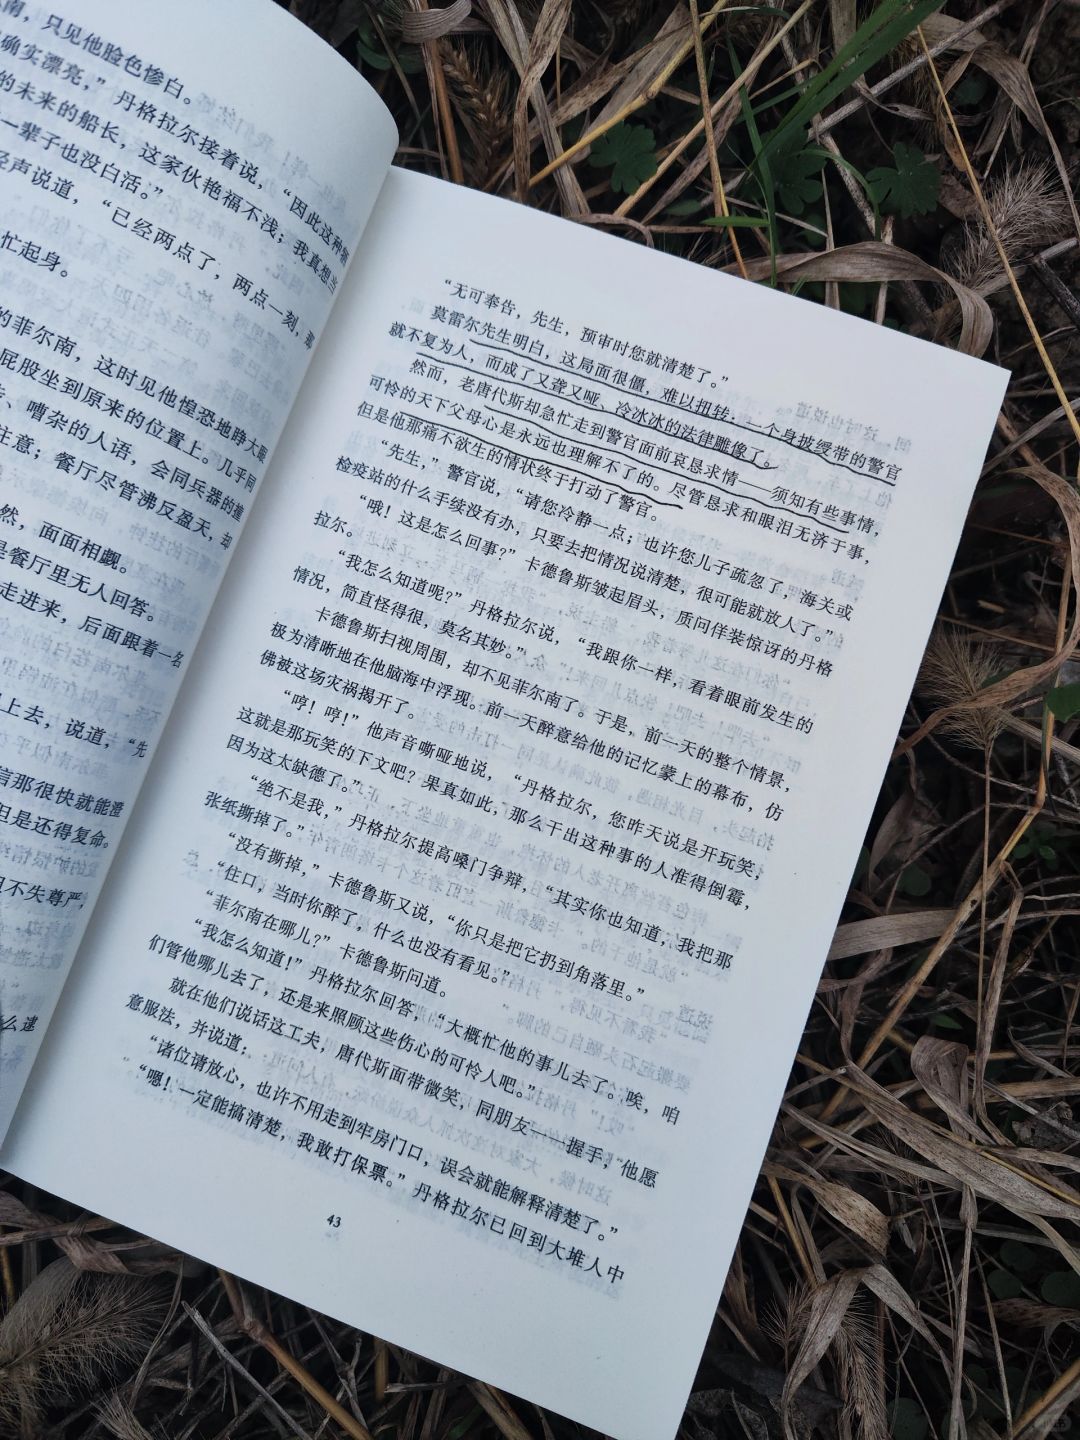 南，只见他脸色惨白。
确实漂亮，”丹格拉尔接着说，“因此这种
的未来的船长，这家伙艳福不浅；我真想当
一辈子也没白活。”
轻声说道，“已经两点了，两点一刻，
忙起身。
的菲尔南，这时见他惶恐地睁大眼
屁股坐到原来的位置上。几乎同
、嘈杂的人语，会同兵器的撞
注意；餐厅尽管沸反盈天，却
然，面面相觑。
是餐厅里无人回答。
走进来，后面跟着一名
上去，说道，“先
信那很快就能澄
但是还得复命。
但不失尊严，
么逮
“无可奉告，先生，预审时您就清楚了。”
莫雷尔先生明白，这局面很僵，难以扭转，一个身披绶带的警官
就不复为人，而成了又聋又哑、冷冰冰的法律雕像了。
然而，老唐代斯却急忙走到警官面前哀恳求情——须知有些事情，
可怜的天下父母心是永远也理解不了的。尽管恳求和眼泪无济于事，
但是他那痛不欲生的情状终于打动了警官。
“先生，”警官说，“请您冷静一点；也许您儿子疏忽了，海关或
检疫站的什么手续没有办，只要去把情况说清楚，很可能就放人了。”
“哦！这是怎么回事？”卡德鲁斯皱起眉头，质问佯装惊讶的丹格
拉尔。
“我怎么知道呢？”丹格拉尔说，“我跟你一样，看着眼前发生的
情况，简直怪得很，莫名其妙。”
卡德鲁斯扫视周围，却不见菲尔南了。于是，前一天的整个情景，
极为清晰地在他脑海中浮现。前一天醉意给他的记忆蒙上的幕布，仿
佛被这场灾祸揭开了。
“哼！哼！”他声音嘶哑地说，“丹格拉尔，您昨天说是开玩笑，
这就是那玩笑的下文吧？果真如此，那么干出这种事的人准得倒霉，
因为这太缺德了。”
“绝不是我，”丹格拉尔提高嗓门争辩，“其实你也知道，我把那
张纸撕掉了。”
“没有撕掉，”卡德鲁斯又说，“你只是把它扔到角落里。”
“住口，当时你醉了，什么也没有看见。”
“菲尔南在哪儿？”卡德鲁斯问道。
“我怎么知道！”丹格拉尔回答，“大概忙他的事儿去了。唉，咱
们管他哪儿去了，还是来照顾这些伤心的可怜人吧。”
就在他们说话这工夫，唐代斯面带微笑，同朋友一一握手，“他愿
意服法，并说道：
“诸位请放心，也许不用走到牢房门口，误会就能解释清楚了。”
“嗯！一定能搞清楚，我敢打保票。”丹格拉尔已回到大堆人中
43